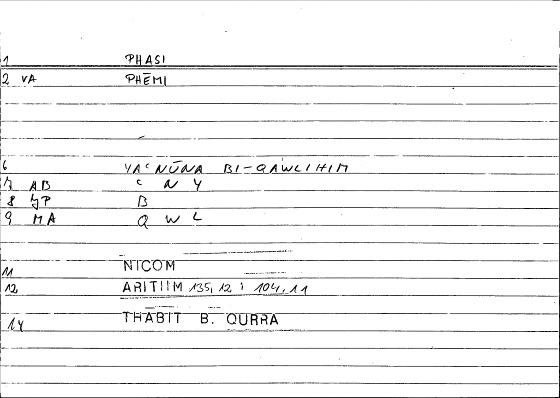 1 PHASI
2 VA PHĒMI
6 YAʿNŪNA BI-QAWLIHIM
7 AB ʿ N Y
8 YP B
9 MA Q W L
11 NICOM
12 ARITIIM 135,12 : 104,11
14 THABIT B. QURRA